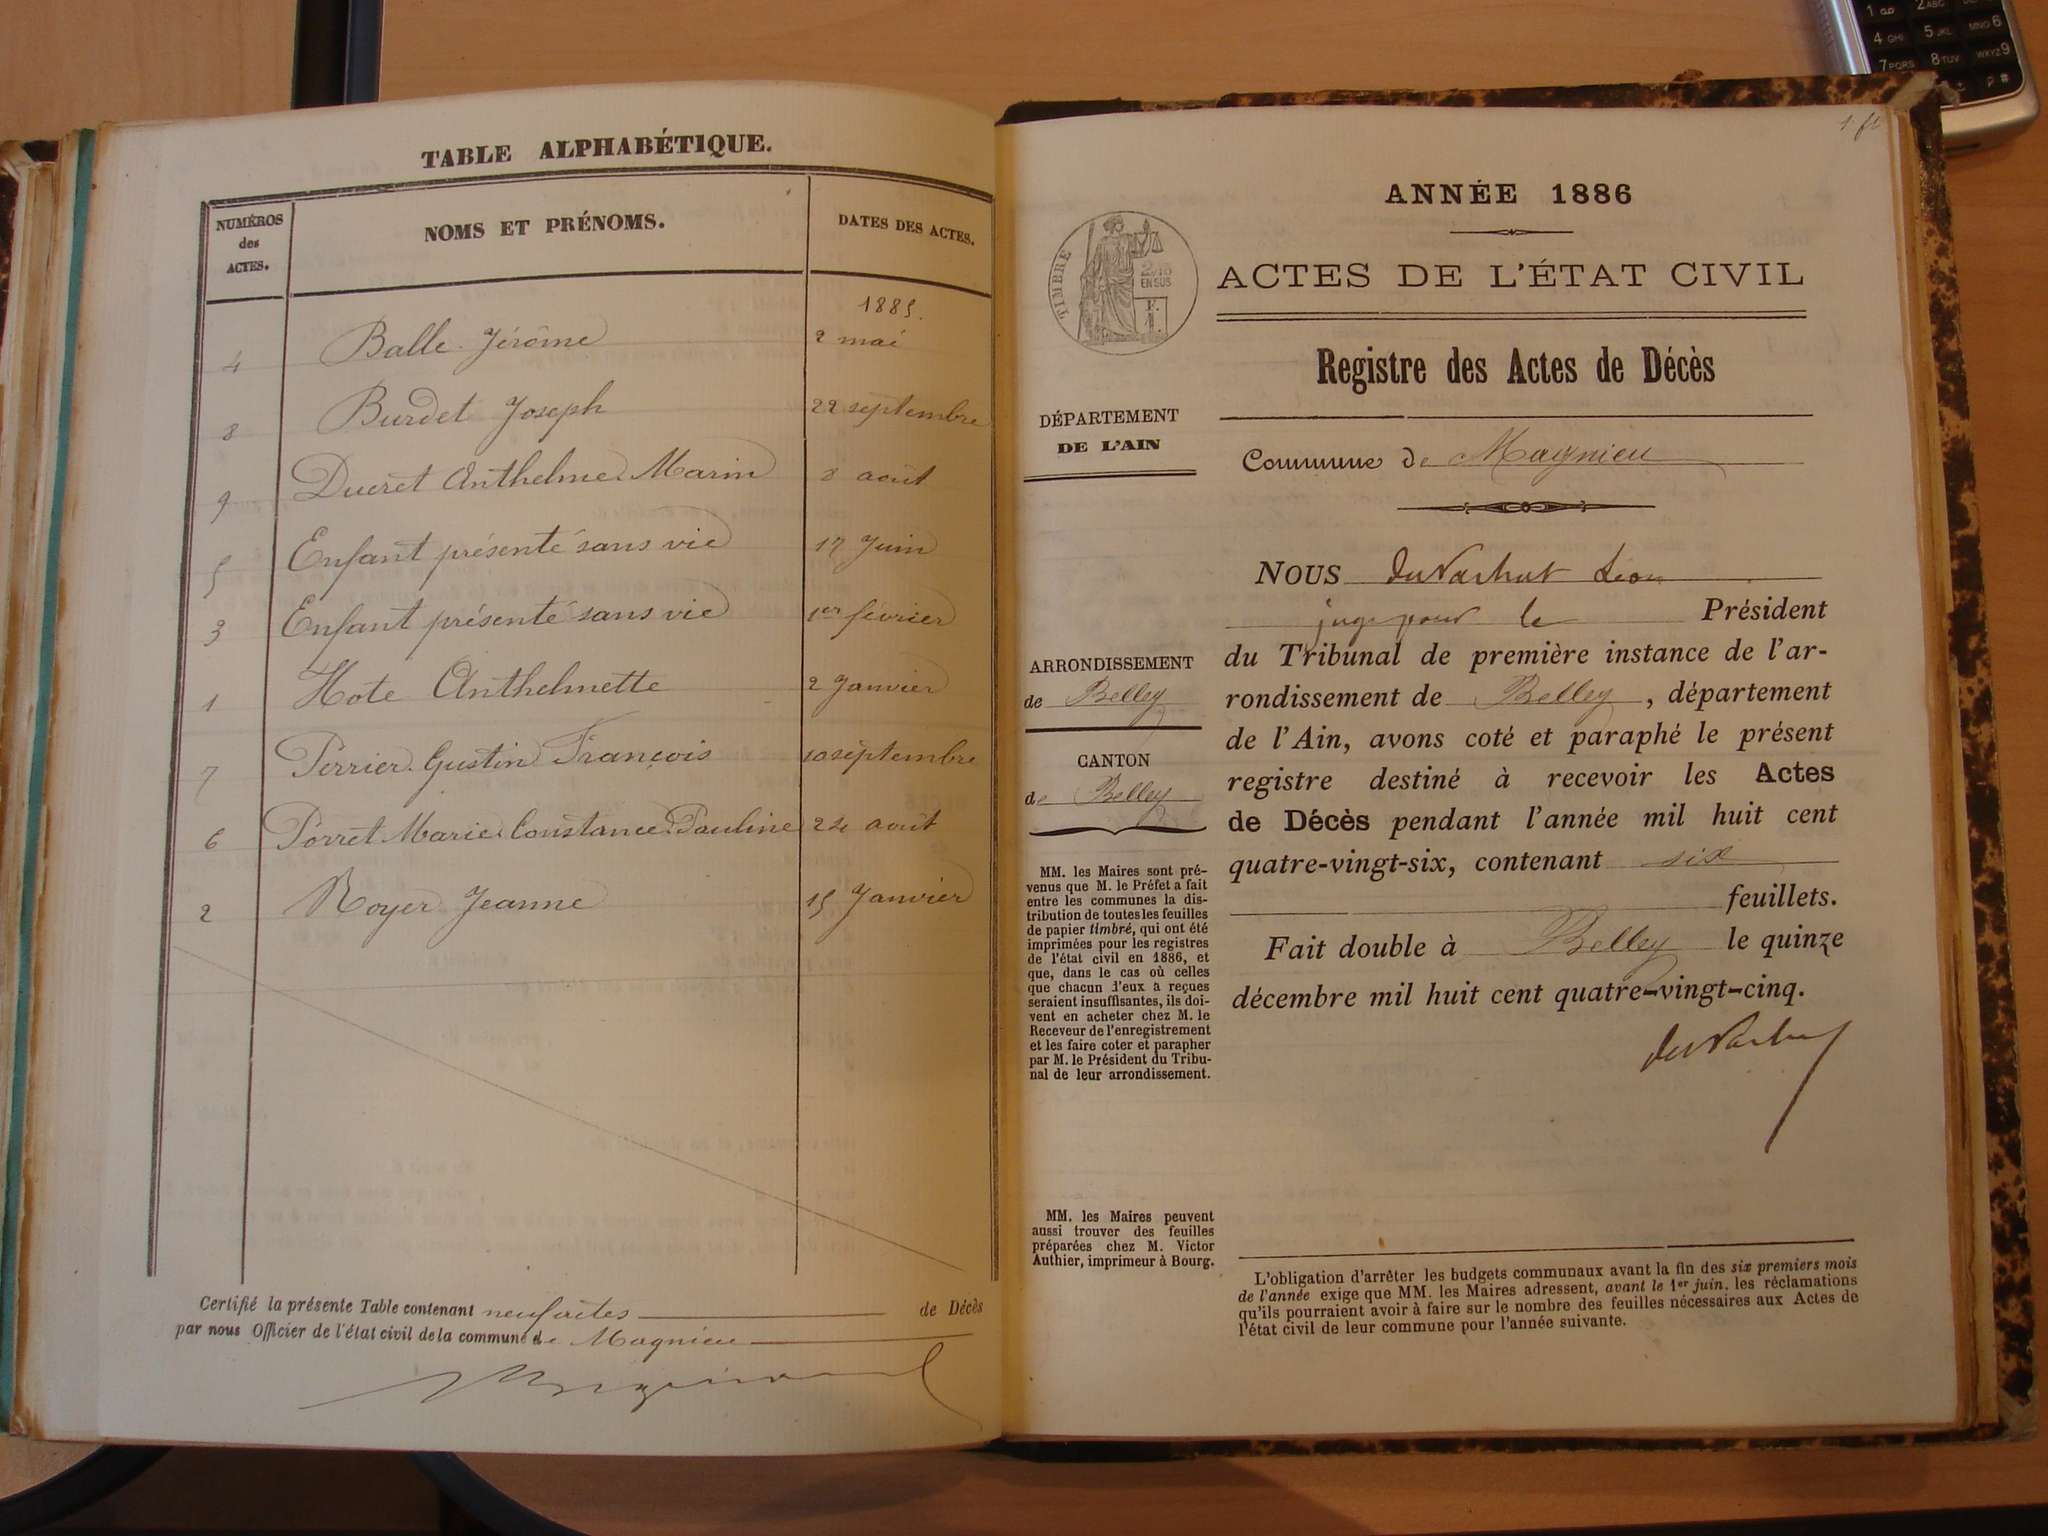 TABLE ALPHABÉTIQUE.
NUMÉROS des ACTES. NOMS ET PRÉNOMS. DATES DES ACTES.
1885.
4 Balle Jérôme 2 mai
8 Burdet Joseph 22 septembre
9 Ducret Anthelme Marin 8 août
5 Enfant présenté sans vie 17 Juin
3 Enfant présenté sans vie 1er février
1 Hote Anthelmette 2 Janvier
7 Perrier Gustin François 10 septembre
6 Porret Marie Constance Pauline 24 août
2 Royer Jeanne 15 Janvier
Certifié la présente Table contenant neuf actes de Décès
par nous Officier de l'état civil de la commune de Magnieu
ANNÉE 1886
TIMBRE
EN SUS
ACTES DE L'ÉTAT CIVIL
Registre des Actes de Décès
DÉPARTEMENT
DE L'AIN
Commune de Magnieu
ARRONDISSEMENT
de Belley
CANTON
de Belley
MM. les Maires sont pré-
venus que M. le Préfet a fait
entre les communes la dis-
tribution de toutes les feuilles
de papier timbré, qui ont été
imprimées pour les registres
de l'état civil en 1886, et
que, dans le cas où celles
que chacun d'eux a reçues
seraient insuffisantes, ils doi-
vent en acheter chez M. le
Receveur de l'enregistrement
et les faire coter et parapher
par M. le Président du Tribu-
nal de leur arrondissement.
MM. les Maires peuvent
aussi trouver des feuilles
préparées chez M. Victor
Authier, imprimeur à Bourg.
NOUS Léon
juge pour le Président
du Tribunal de première instance de l'ar-
rondissement de Belley, département
de l'Ain, avons coté et paraphé le présent
registre destiné à recevoir les Actes
de Décès pendant l'année mil huit cent
quatre-vingt-six, contenant six
feuillets.
Fait double à Belley le quinze
décembre mil huit cent quatre-vingt-cinq.
L'obligation d'arrêter les budgets communaux avant la fin des six premiers mois
de l'année exige que MM. les Maires adressent, avant le 1er juin, les réclamations
qu'ils pourraient avoir à faire sur le nombre des feuilles nécessaires aux Actes de
l'état civil de leur commune pour l'année suivante.